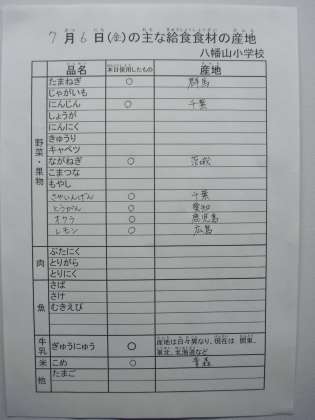 7月6日(金)の主な給食食材の産地
八幡山小学校
品名 本日使用したもの 産地
野菜・果物
たまねぎ ○ 群馬
じゃがいも
にんじん ○ 千葉
しょうが
にんにく
きゅうり
キャベツ
ながねぎ ○ 茨城
こまつな
もやし
さやいんげん ○ 千葉
とうがん ○ 愛知
オクラ ○ 鹿児島
レモン ○ 広島
肉
ぶたにく
とりがら
とりにく
魚
さば
さけ
むきえび
牛乳 ぎゅうにゅう ○ 産地は日々異なり、現在は 関東、
東北、北海道など
米 こめ ○ 青森
他 たまご